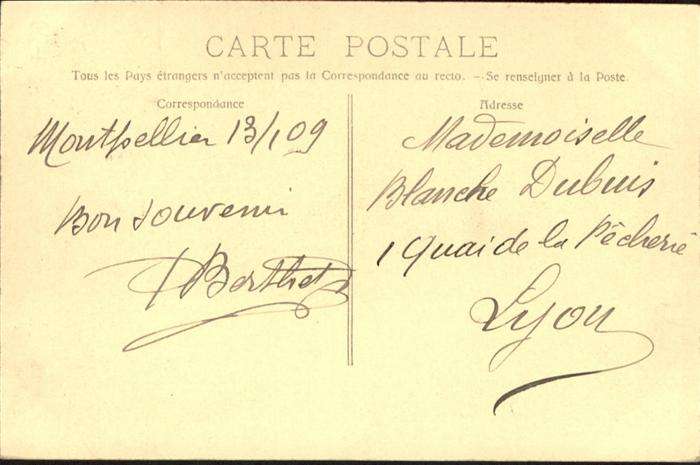 CARTE POSTALE
Tous les Pays étrangers n'acceptent pas la Correspondance au recto. — Se renseigner à la Poste.
Correspondance
Montpellier 13/1 09
Bon souvenir
Berthet
Adresse
Mademoiselle
Blanche Dubuis
1 Quai de la Pêcherie
Lyon